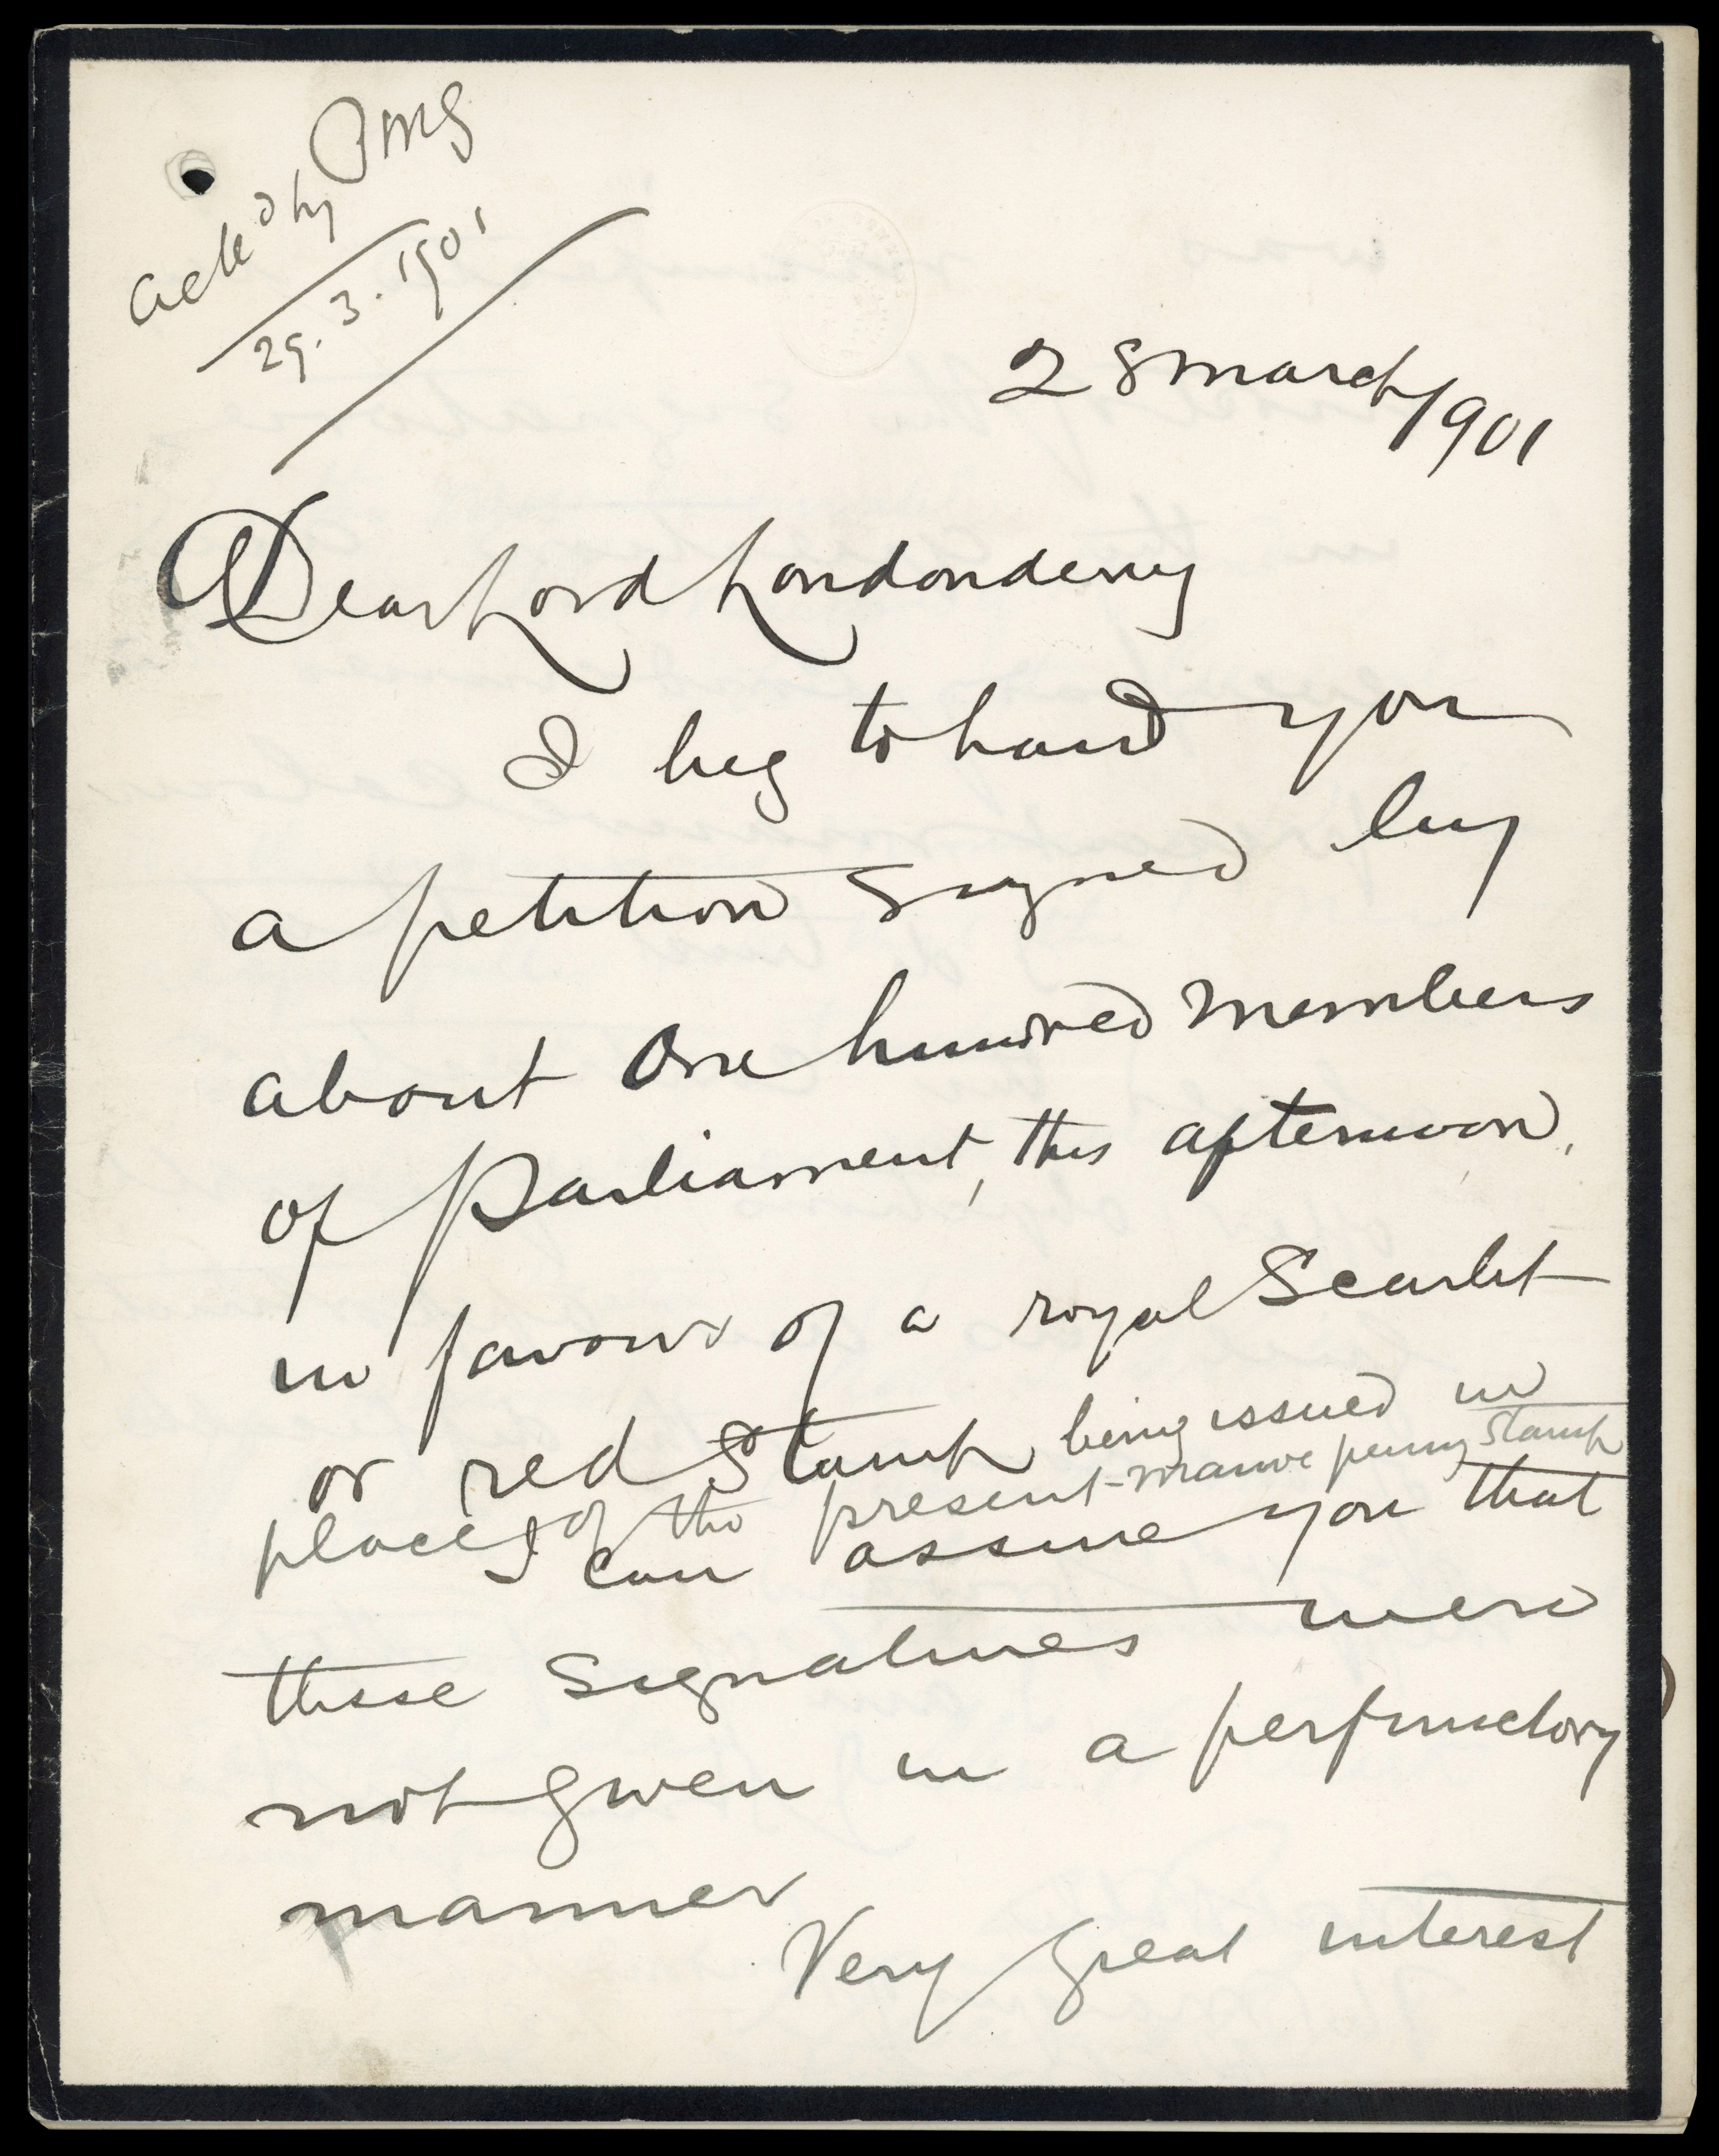 Ackd by PMG
29.3.1901
28 March/1901
Dear Lord Londonderry
I beg to hand you
a petition signed by
about One hundred Members
of Parliament, this afternoon,
in favour of a royal Scarlet
or red Stamp being issued in
place of the present mauve penny stamp
I can assure you that
these signatures were
not given in a perfunctory
manner
Very great interest